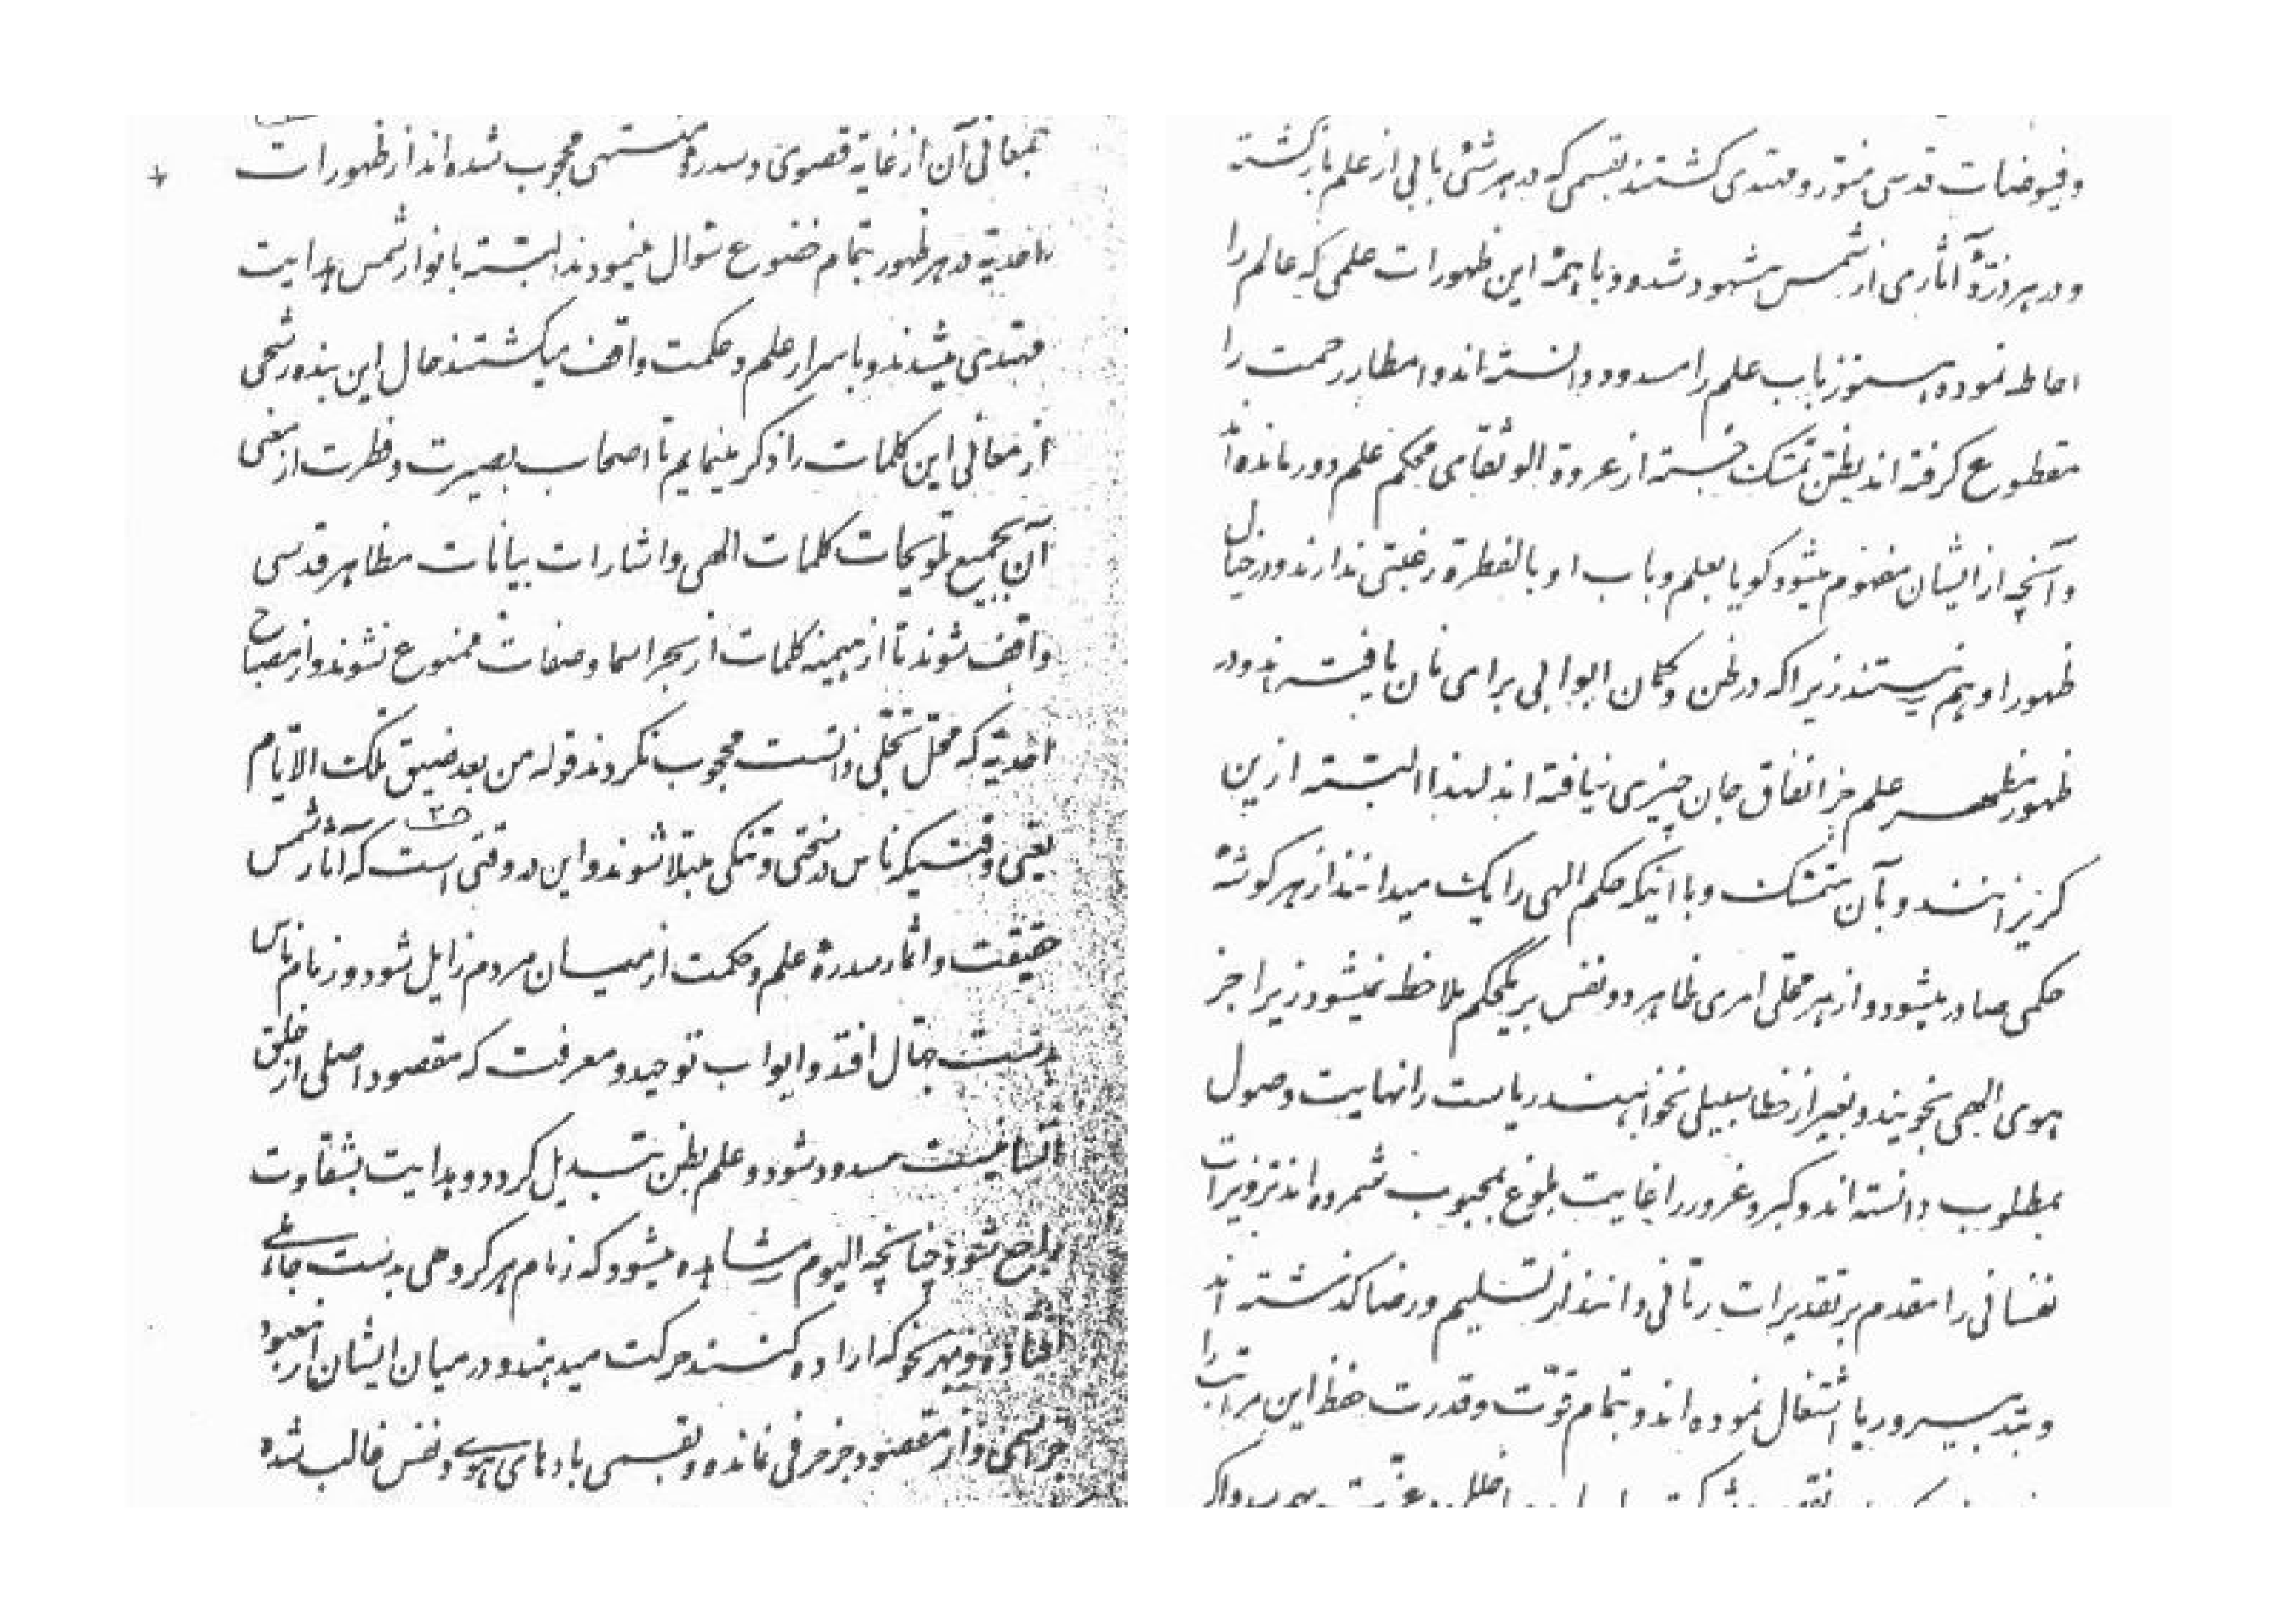 بمعانی آن از غایهٔ قصوی و سدرهٔ منتهی محجوب شده‌اند از ظهورات
احدیّه در هر ظهور بتمام خضوع سئوال مینمودند البتّه بانوار شمس هدایت
مهتدی میشدند و باسرار علم و حکمت واقف میگشتند حال این بنده رشحی
از معانی این کلمات را ذکر مینمایم تا اصحاب بصیرت و فطرت از معنی
آن بجمیع تلویحات کلمات الهی و اشارات بیانات مظاهر قدسی
واقف شوند تا از هیمنه کلمات از بحر اسما و صفات ممنوع نشوند و از مصباح
احدیّه که محلّ تجلّی ذاتست محجوب نگردند قوله من بعد ضیق تلک الایّام
یعنی وقتیکه ناس در سختی و تنگی مبتلا شوند و این در وقتی است که آثار شمس
حقیقت و اثمار سدرهٔ علم و حکمت از میان مردم زایل شود و زمام ناس
بدست جهّال افتد و ابواب توحید و معرفت که مقصود اصلی از خلق
انسانیست مسدود شود و علم بظنّ تبدیل گردد و هدایت بشقاوت
راجع شود چنانچه الیوم مشاهده میشود که زمام هر گروهی بدست جاهلی
افتاده و بهر نحو که اراده کنند حرکت میدهند و در میان ایشان از معبود
جز اسمی و از مقصود جز حرفی نمانده و بقسمی بادهای هوی و نفس غالب شده
و فیوضات قدسی منوّر و مهتدی گشتند بقسمی که در هر شیئ بابی از علم باز گشته
و در هر ذرّهٔ آثاری از شمس مشهود شده و با همهٔ این ظهورات علمی که عالم را
احاطه نموده هنوز باب علم را مسدود دانسته‌اند و امطار رحمت را
مقطوع گرفته‌اند بظنّ تمسّک جسته از عروة الوثقای محکم علم دور مانده‌اند
و آنچه از ایشان مفهوم میشود گویا بعلم و باب او بالفطرة رغبتی ندارند و در خیال
ظهور او هم نیستند زیرا که در ظنّ و گمان ابوابی برای نان یافته‌اند و در
ظهور مظهر علم جز انفاق جان چیزی نیافته‌اند لهذا البتّه از این
گریزانند و بآن متمسّک و با اینکه حکم الهی را یک میدانند از هر گوشهٔ
حکمی صادر میشود و از هر محلّی امری ظاهر دو نفس بر یکحکم ملاحظه نمیشود زیرا جز
هوی الهی نجویند و بغیر از خطا سبیلی نخواهند ریاست را نهایت وصول
بمطلوب دانسته‌اند و کبر و غرور را غایت بلوغ بمحبوب شمرده‌اند تزویرات
نفسانی را مقدم بر تقدیرات ربّانی دانند از تسلیم و رضا گذشته‌اند
و بتدبیر و ریا اشتغال نموده‌اند و بتمام قوّت و قدرت حفظ این مراتب را